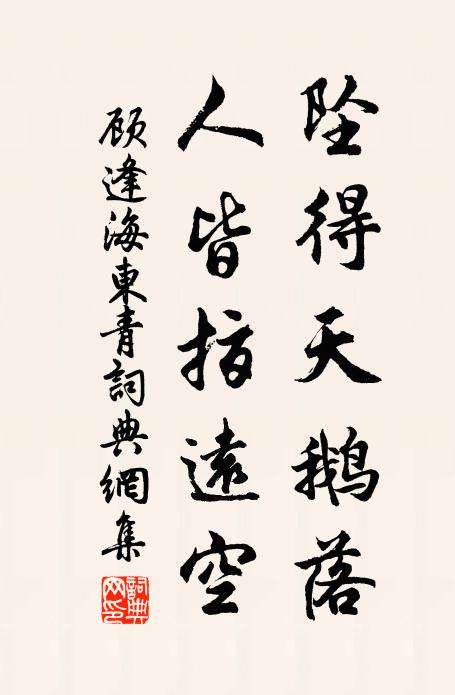 坠得天鹅落
人皆指遠空
顾逢海東青詞典網集
詞典网印